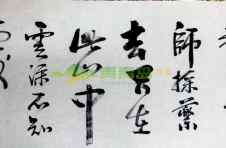 師採藥
去只在
此山中
雲深不知